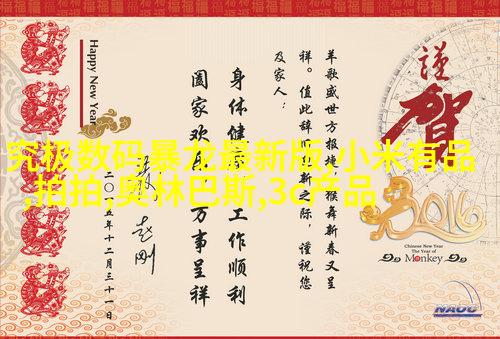 謹賀
2016
Chinese New Year
The Year of
Monkey
羊歌盛世方报捷，猴舞新春又呈
祥。值此辞旧迎新之际，谨祝您
及家人：
身体健康 工作顺利
阖家欢乐 万事呈祥
赵刚
二〇一五年十二月三十一日
Happy New Year
NAOC
究极数码暴龙最新版,小米有品
,拍拍,奥林巴斯,3c产品